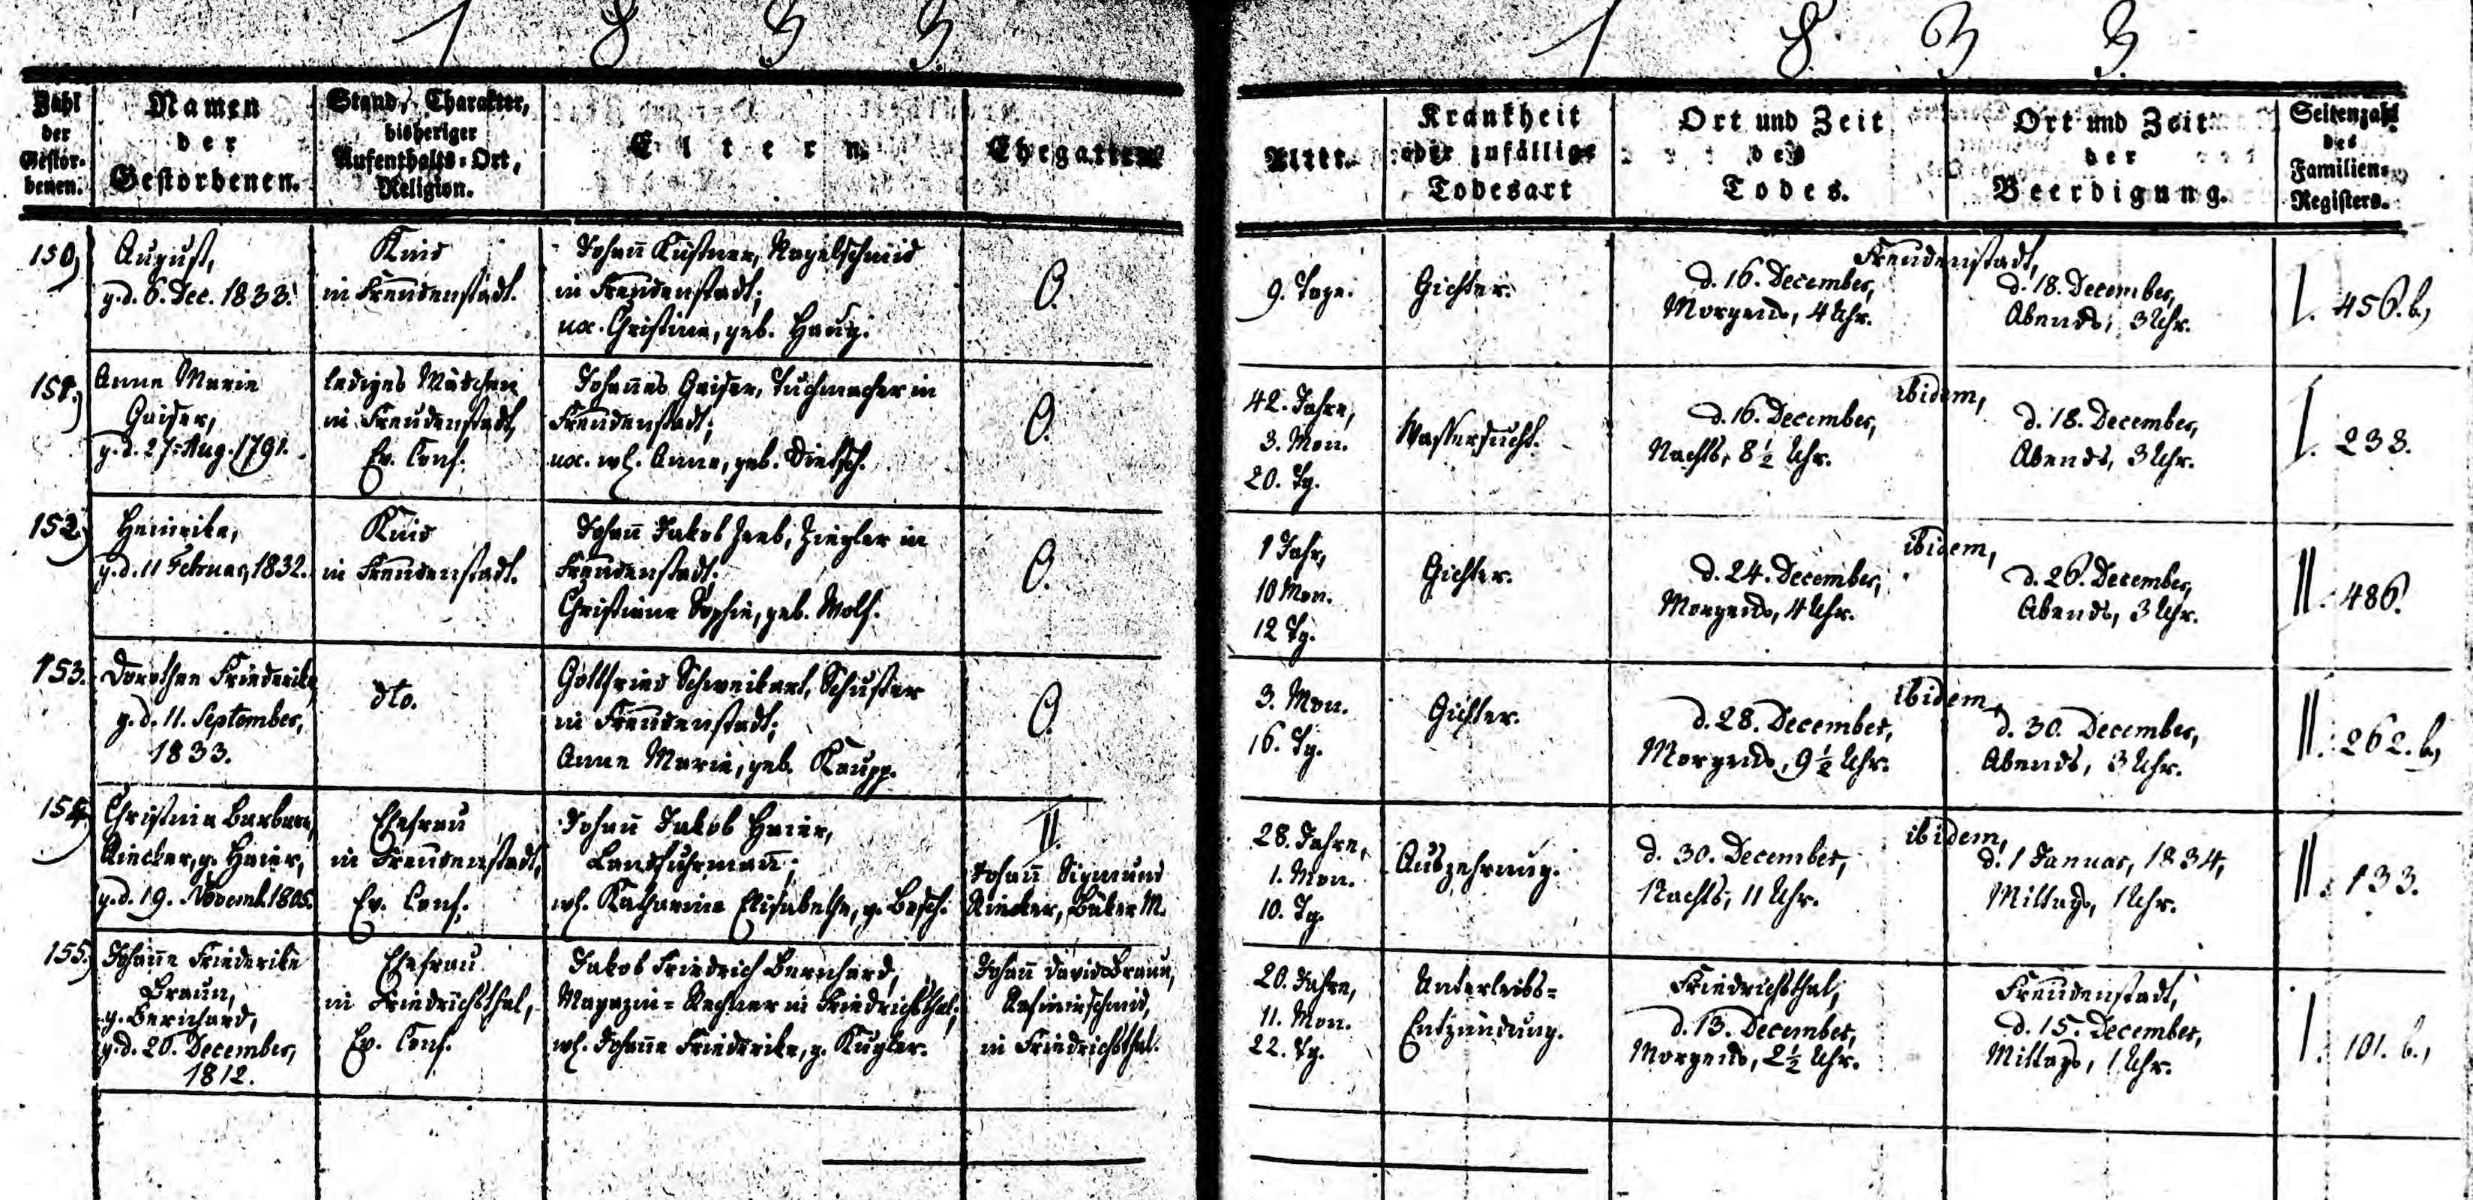 1 8 3 3.
Zahl
der
Gestor-
benen.
Namen
der
Gestorbenen.
Stand, Charakter,
bisheriger
Aufenthalts-Ort,
Religion.
Eltern.
Ehegatten.
150)
August,
g. d. 6. Dec. 1833.
Kind
in Freudenstadt.
Johann Küstner, Nagelschmid
in Freudenstadt;
ux. Christine, geb. Haug.
0.
151.)
Anne Marie
Gaiser,
g. d. 27. Aug. 1791.
lediges Mädchen
in Freudenstadt,
Ev. Conf.
Johannes Gaiser, Tuchmacher in
Freudenstadt;
ux. wl. Anna, geb. Dietsch.
0.
152.)
Heinrike,
g. d. 11 Februar, 1832.
Kind
in Freudenstadt.
Johann Jakob Zeeb, Ziegler in
Freudenstadt;
Christiane Sophie, geb. Wolf.
0.
153.
Dorothea Friederike
g. d. 11. September,
1833.
dto.
Gottfried Schweikart, Schuster
in Freudenstadt;
Anne Marie, geb. Kaupp.
0.
154)
Christine Barbara
Rincker, g. Haier,
g. d. 19. Novemb. 1805.
Ehefrau
in Freudenstadt,
Ev. Conf.
Johann Jakob Haier,
Landfuhrmann;
wl. Katharine Elisabethe, g. Besch.
II.
Johann Sigmund
Rincker, Bäker M.
155.)
Johanne Friederike
Braun,
g. Bernhard,
g. d. 20. December,
1812.
Ehefrau
in Friedrichsthal,
Ev. Conf.
Jakob Friedrich Bernhard,
Magazin-Rechner in Friedrichsthal;
wl. Johanne Friederike, g. Kugler.
Johann David Braun,
in Friedrichsthal.
1 8 3 3.
Alter.
Krankheit
oder zufällige
Todesart
Ort und Zeit
des
Todes.
Ort und Zeit
der
Beerdigung.
Seitenzahl
des
Familien-
Registers.
9. Tage.
Gichter.
Freudenstadt,
d. 16. December,
Morgends, 4 Uhr.
d. 18. December,
Abends, 3 Uhr.
I. 456. b,
42. Jahre,
3. Mon.
20. Tg.
Wassersucht.
ibidem,
d. 16. December,
Nachts, 8 1/2 Uhr.
d. 18. December,
Abends, 3 Uhr.
I. 233.
1 Jahr,
10 Mon.
12 Tg.
Gichter.
ibidem,
d. 24. December,
Morgends, 4 Uhr.
d. 26. December,
Abends, 3 Uhr.
II. 486.
3. Mon.
16. Tg.
Gichter.
ibidem,
d. 28. December,
Morgends, 9 1/2 Uhr.
d. 30. December,
Abends, 3 Uhr.
II. 262. b,
28. Jahre,
1. Mon.
10. Tg.
Auszehrung.
ibidem,
d. 30. December,
Nachts, 11 Uhr.
d. 1 Januar, 1834,
Mittags, 1 Uhr.
II. 133.
20. Jahre,
11. Mon.
22. Tg.
Unterleibs-
Entzündung.
Friedrichsthal,
d. 13. December,
Morgends, 2 1/2 Uhr.
Freudenstadt,
d. 15. December,
Mittags, 1 Uhr.
I. 101. b.,